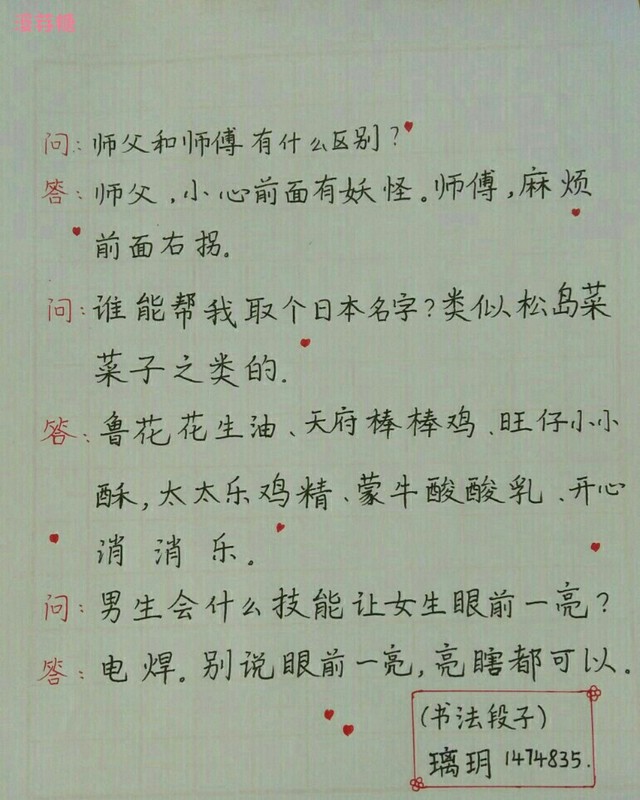 问：师父和师傅有什么区别？
答：师父，小心前面有妖怪。师傅，麻烦
前面右拐。
问：谁能帮我取个日本名字？类似松岛菜
菜子之类的.
答：鲁花花生油、天府棒棒鸡、旺仔小小
酥，太太乐鸡精、蒙牛酸酸乳、开心
消消乐。
问：男生会什么技能让女生眼前一亮？
答：电焊。别说眼前一亮，亮瞎都可以.
（书法段子）
璃玥 1474835.